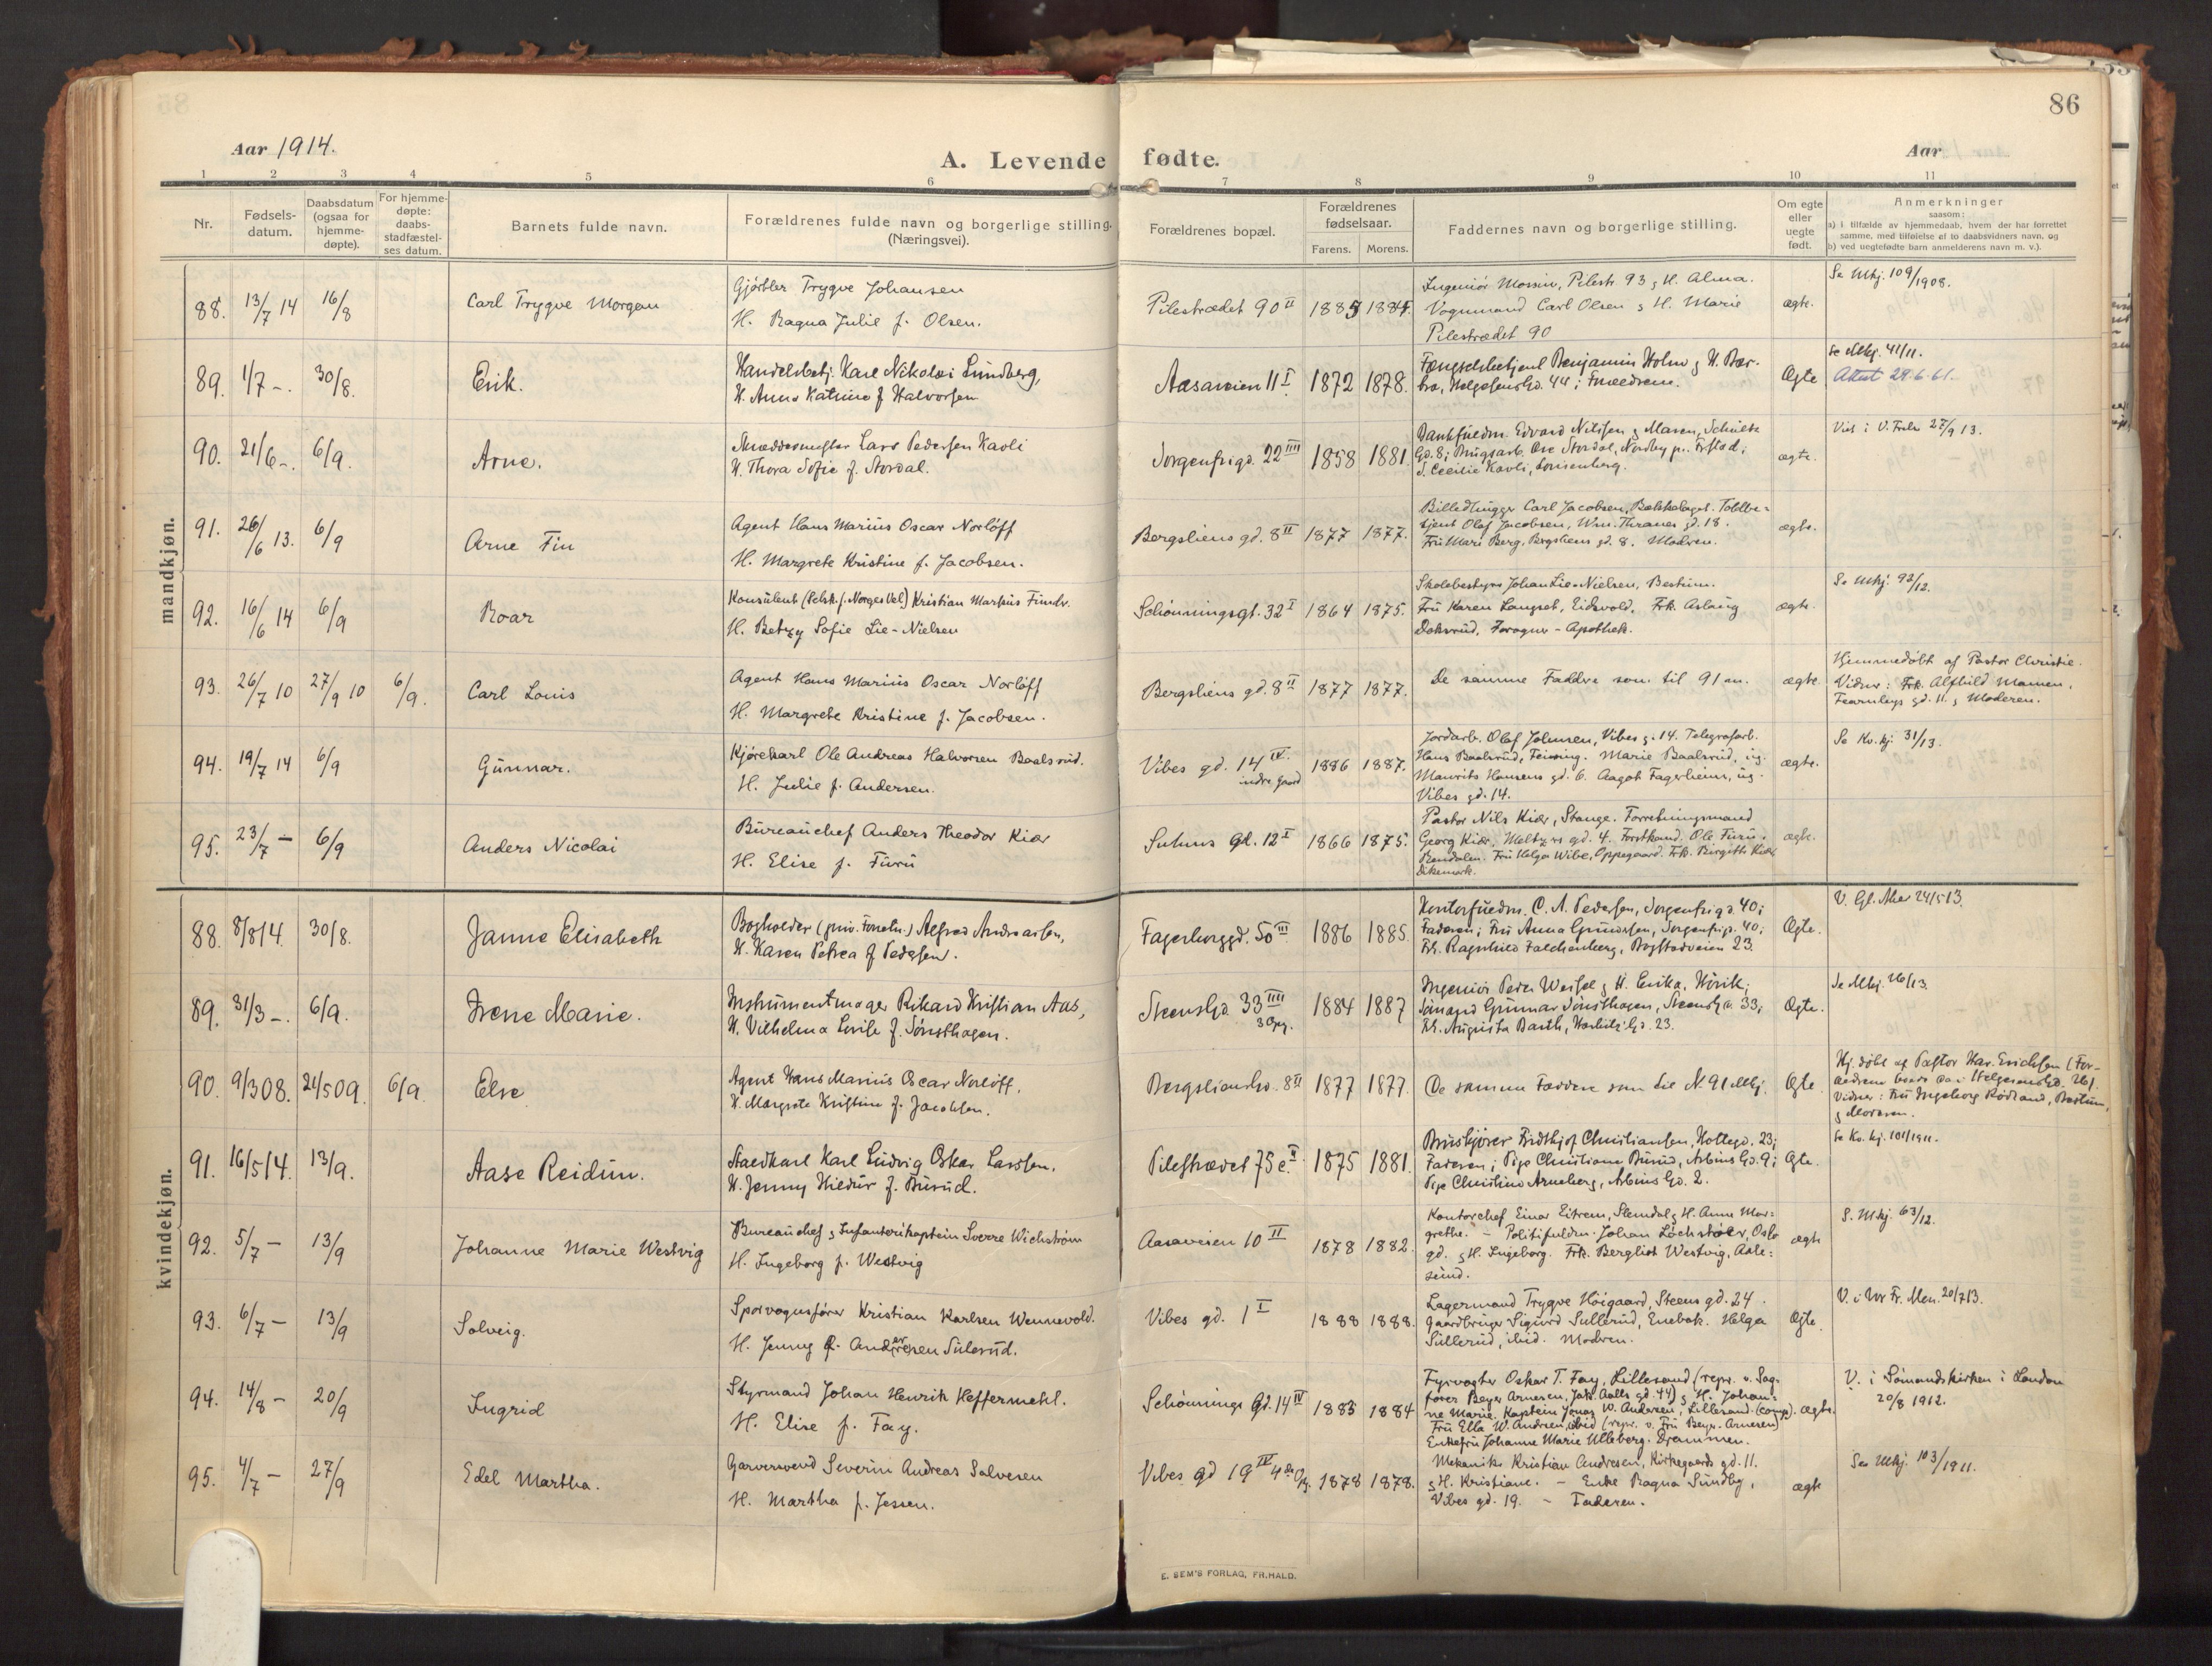 86
Aar 1914.
A. Levende fødte.
Aar
1 2 3 4 5 6 7 8 9 10 11
Nr.
Fødsels-
datum.
Daabsdatum
(ogsaa for
hjemme-
døpte).
For hjemme-
døpte:
daabs-
stadfæstel-
ses datum.
Barnets fulde navn.
Forældrenes fulde navn og borgerlige stilling.
(Næringsvei).
Forældrenes bopæl.
Forældrenes
fødselsaar.
Farens. Morens.
Faddernes navn og borgerlige stilling.
Om egte
eller
uegte
født.
Anmerkninger
saasom:
a) i tilfælde av hjemmedaab, hvem der har forrettet
samme, med tilføielse af to daabsvidners navn, og
b) ved uegtefødte barn anmelderens navn m. v.).
mandkjøn.
88. 13/7 14 16/8
Carl Trygve Morgan
Gjørtler Trygve Johansen
H. Ragna Julie f. Olsen.
Pilestrædet 90 II
Ingeniør Mossin, Pilestr. 93 & H. Alma.
Vognmand Carl Olsen & H. Marie
Pilestrædet 90
ægte.
Se Mkj. 109/1908.
89. 1/7 -. 30/8.
Erik.
Handelsbetj. Karl Nikolai Lundberg,
H. Anna Katrine f. Halvorsen
Aasaveien 11 I 1872 1878.
Fængselsbetjent Benjamin Holm & H. Bar-
bra, Helgesensgd. 44; Forældrene.
Ægte
Se Mkj. 41/11.
Attest 28.6.61.
90. 21/6 -. 6/9.
Arne.
Skræddermester Lars Pedersen Kavli
H. Thora Sofie f. Stordal.
Sorgenfrigd. 22 III 1858 1881.
Bankfuldm. Edvard Nilssen & Maren, Schultz
Gd. 8; Brugsarb. Ole Stordal, Nordby
S. Cecilie Kavli, Louisenberg.
ægte.
Viet i V. Frelz 27/9 13.
91. 26/6 13. 6/9
Arne Fin
Agent Hans Marius Oscar Norløff
H. Margrete Kristine f. Jacobsen.
Bergsliens gd. 8 II 1877 1877.
Billedhugger Carl Jacobsen, Bækkelaget. Toldbe-
tjent Olaf Jacobsen, Wm. Thranes gd. 18.
Fru Mari Berg, Bergsliens gd. 8. Modren.
ægte.
92. 16/6 14 6/9
Roar
Konsulent (Selsk. f. Norges Vel) Kristian Markus Fundr.
H. Betzy Sofie Lie-Nielsen
Schønningsgt. 32 I 1864 1875.
Skolebestyrer Johan Lie-Nielsen, Bestum.
Fru Karen Langset, Eidsvold. Frk. Aslaug
Doksrud, Frogner-Apothek.
ægte.
Se Mkj. 92/12.
93. 26/7 10 27/9 10 6/9.
Carl Louis
Agent Hans Marius Oscar Norløff
H. Margrete Kristine f. Jacobsen.
Bergsliens gd. 8 II 1877 1877.
De samme Faddre som til 91 m.
ægte
Hjemmedøbt af Pastor Christie.
Vidner: Frk. Alfhild Mamen,
Fearnleys gd. 11. & Moderen.
94. 19/7 14 6/9
Gunnar.
Kjørekarl Ole Andreas Halvorsen Baalsrud.
H. Julie f. Andersen.
Vibes gd. 14 IV.
indre Gaard
1886 1887.
Jordarb. Olaf Johnsen, Vibes g. 14. Telegrafarb.
Hans Baalsrud, Feiring. Marie Baalsrud, ug.
Maurits Hansens gd. 6. Aagot Fagerheim, ug.
Vibes gd. 14.
ægte.
Se Kv. kj. 31/13.
95. 23/7 - 6/9
Anders Nicolai
Bureauchef Anders Theodor Kiær
H. Elise f. Furu
Suhms gd. 12 I 1866 1875.
Pastor Nils Kiær, Stange. Forretningsmand
Georg Kiær, Meltzers gd. 4. Forstkand. Ole Furu,
Rendalen. Fru Helga Wibe, Oppegaard. Frk. Birgitte Kiær,
Dikemark.
ægte.
kvindekjøn.
88. 8/8 14. 30/8.
Janne Elisabeth
Bogholder (priv. Forretn.) Alfred Andreassen,
H. Karen Petrea f. Pedersen.
Fagerborggd. 50 III 1886 1885.
Kontorfuldm. C. A. Pedersen, Sorgenfrigd. 40;
Faderen; Fru Anna Gundersen, Sorgenfrigd. 40;
Frk. Ragnhild Falchenberg, Bogstadveien 23.
Ægte.
V. Gl. Aker 24/5 13.
89. 31/3 -. 6/9.
Irene Marie.
Instrumentmager Rikard Kristian Aas,
H. Vilhelma Lovise f. Sønsthagen.
Steensgd. 33 IIII
3 Opg.
1884 1887
Ingeniør Peder Wessel & H. Erika, Hövik;
Sømand Gunnar Sønsthagen, Steensgd. 33;
Frk. Augusta Barth, Gd. 23.
Ægte.
Se Mkj. 26/13
90. 9/3 08. 21/5 09. 6/9.
Else
Agent Hans Marius Oscar Norløff.
H. Margrete Kristine f. Jacobsen.
8 II 1877 1877.
De samme Faddere som til N. 91 Mkj.
Ægte
Hj. døbt af Pastor Har. Erichsen (For-
ældrene boede da i Helgesensgd. 26).
Vidner: Fru Ingeborg Rödland, Bestum,
& Moderen.
91. 16/5 14. 13/9.
Aase Reidun.
Staldkarl Karl Ludvig Oskar Larssen.
H. Jenny Hildur f. Burud.
Pilestrædet 75 c. II 1875 1881.
Bruskjører Fridthjof Christiansen, Holtegd. 23;
Faderen; Pige Christiane Burud, Arbins Gd. 9;
Pige Christine Arneberg, Arbins Gd. 2.
Ægte.
Se Kv. kj. 101/1911.
92. 5/7 - 13/9
Johanne Marie Westvig
Bureauchef & Infanterikaptein Sverre Wichstrøm
H. Ingeborg f. Westvig
Aasaveien 10 II 1878 1882.
Kontorchef Einar Eitrem, Slemdal & H. Anne Mar-
grethe. - Politifuldm. Johan Lochstøer, Oslo
gd. & H. Ingeborg. Frk. Bergliot Westvig, Aale-
sund.
ægte
S. Mkj. 63/12.
93. 6/7 - 13/9
Solveig.
Sporvognsfører Kristian Karlsen Wennevold.
H. Jenny f. Andresen Sulerud.
Vibes gd. 1 I 1888 1888.
Lagermand Trygve Höigaard, Steens gd. 24.
Gaardbruger Sigurd Sullerud, Enebak. Helga
Sullerud, ibid. Modren.
Ægte.
V. i Vor Fr. Men. 20/7 13.
94. 14/8 - 20/9
Ingrid
Styrmand Johan Henrik Heffermehl.
H. Elise f. Fay.
Schønnings Gd. 14 IV 1885 1884
Fyrvogter Oskar T. Fay, Lillesand (repr. v. Sag-
fører Beyer Arnesen, Jak. Aalls gd. 44) & H. Johan-
ne Marie. Kaptein Jonas W. Andersen, Lillesand.
Fru Ella W. Andresen ibid (repr. v. Fru Beyer Arnesen)
Enkefru Johanne Marie Ulleberg. Drammen.
ægte.
V. i Sømandskirken i London
20/8 1912.
95. 4/7 - 27/9
Edel Martha.
Garversvend Severin Andreas Salvesen
H. Martha f. Jessen.
Vibes gd 19 IV 4de Opg. 1878 1878.
Mekanik. Kristian Andresen, Kirkegaards gd. 11.
& H. Kristiane. - Enke Ragna Sundby,
Vibes gd. 19. - Faderen.
ægte
See Mkj. 103/1911.
E. SEM'S FORLAG, FR.HALD.